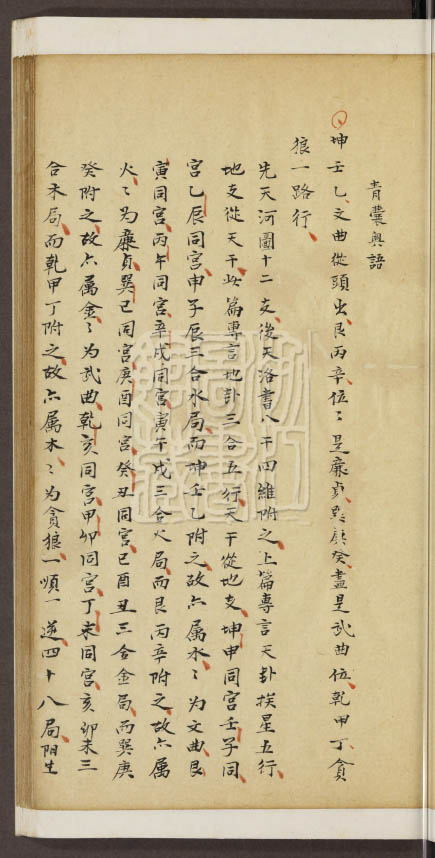 青囊奧語
坤壬乙文曲從頭出艮丙辛位〻是廉貞巽庚癸盡是武曲位乾甲丁貪
狼一路行
先天河圖十二支後天洛書八干四維附之上篇專言天卦挨星五行
地支從天干此篇專言地卦三合五行天干從地支坤申同宮壬子同
宮乙辰同宮申子辰三合水局而坤壬乙附之故亦屬水〻為文曲艮
寅同宮丙午同宮辛戌同宮寅午戌三合火局而艮丙辛附之故亦屬
火〻為廉貞巽巳同宮庚酉同宮癸丑同宮巳酉丑三合金局而巽庚
癸附之故亦屬金〻為武曲乾亥同宮甲卯同宮丁未同宮亥卯未三
合木局而乾甲丁附之故亦屬木〻為貪狼一順一逆四十八局陽生